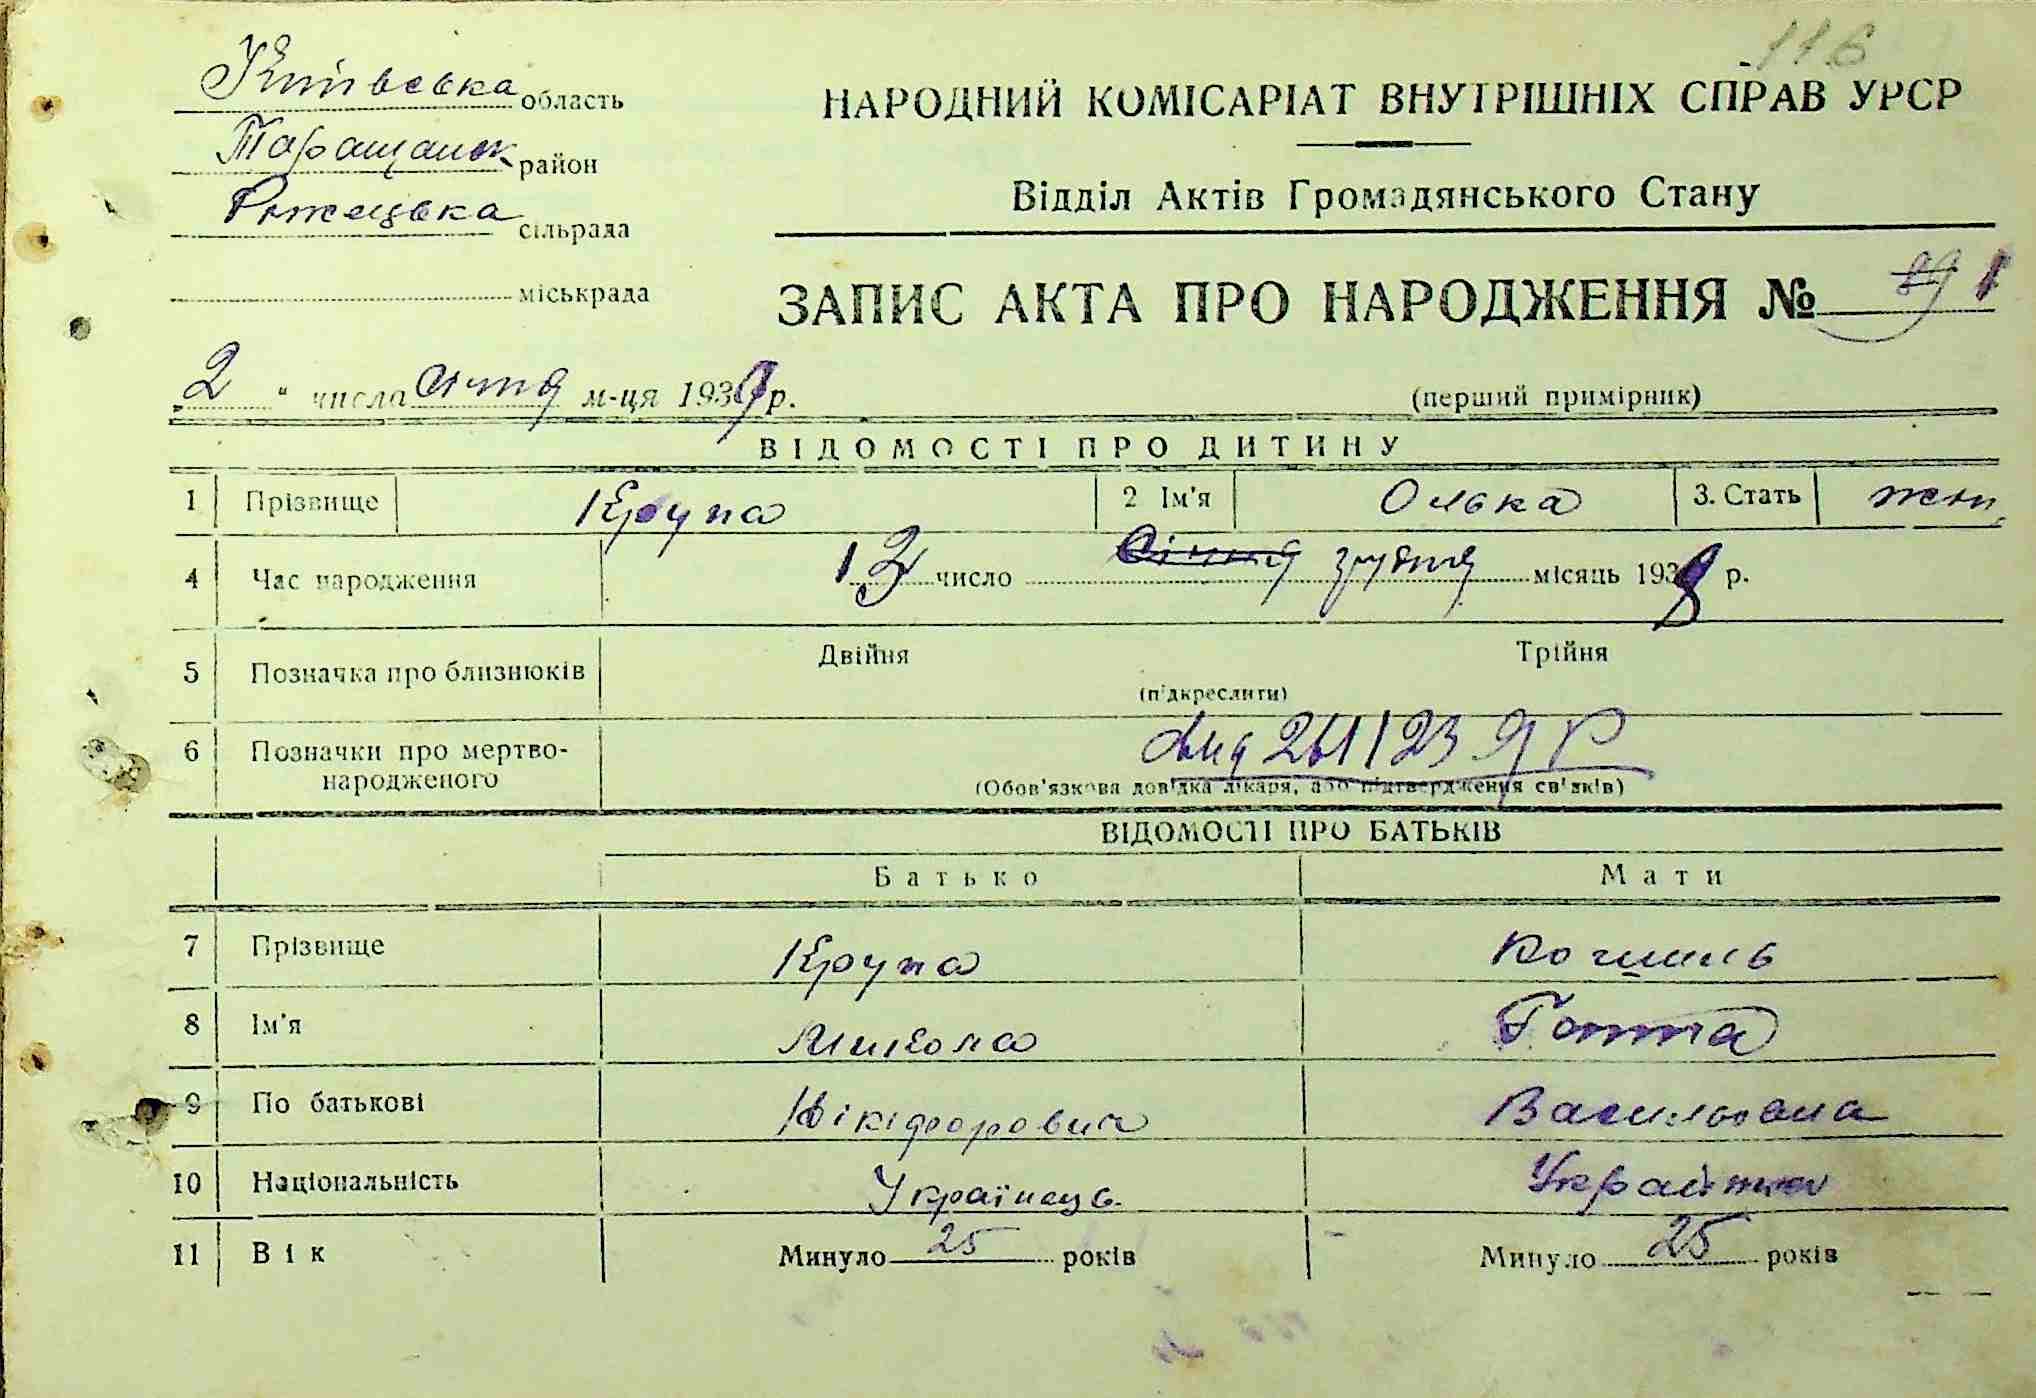 116
Київська область
Таращанськ район
сільрада
міськрада
НАРОДНИЙ КОМІСАРІАТ ВНУТРІШНІХ СПРАВ УРСР
Відділ Актів Громадянського Стану
ЗАПИС АКТА ПРО НАРОДЖЕННЯ № 1
2 " числа січня м-ця 1939 р.
(перший примірник)
ВІДОМОСТІ ПРО ДИТИНУ
1 Прізвище Крупа 2 Ім'я Олька 3. Стать жін.
4 Час народження 12 число січня грудня місяць 1938 р.
5 Позначка про близнюків Двійня Трійня
(підкреслити)
6 Позначки про мертво-народженого
(Обов'язкова довідка лікаря, або підтвердження свідків)
ВІДОМОСТІ ПРО БАТЬКІВ
Батько Мати
7 Прізвище Крупа
8 Ім'я Микола Ганна
9 По батькові Нікіфорович Васильовна
10 Національність Українець Українка
11 Вік Минуло 25 років Минуло 25 років